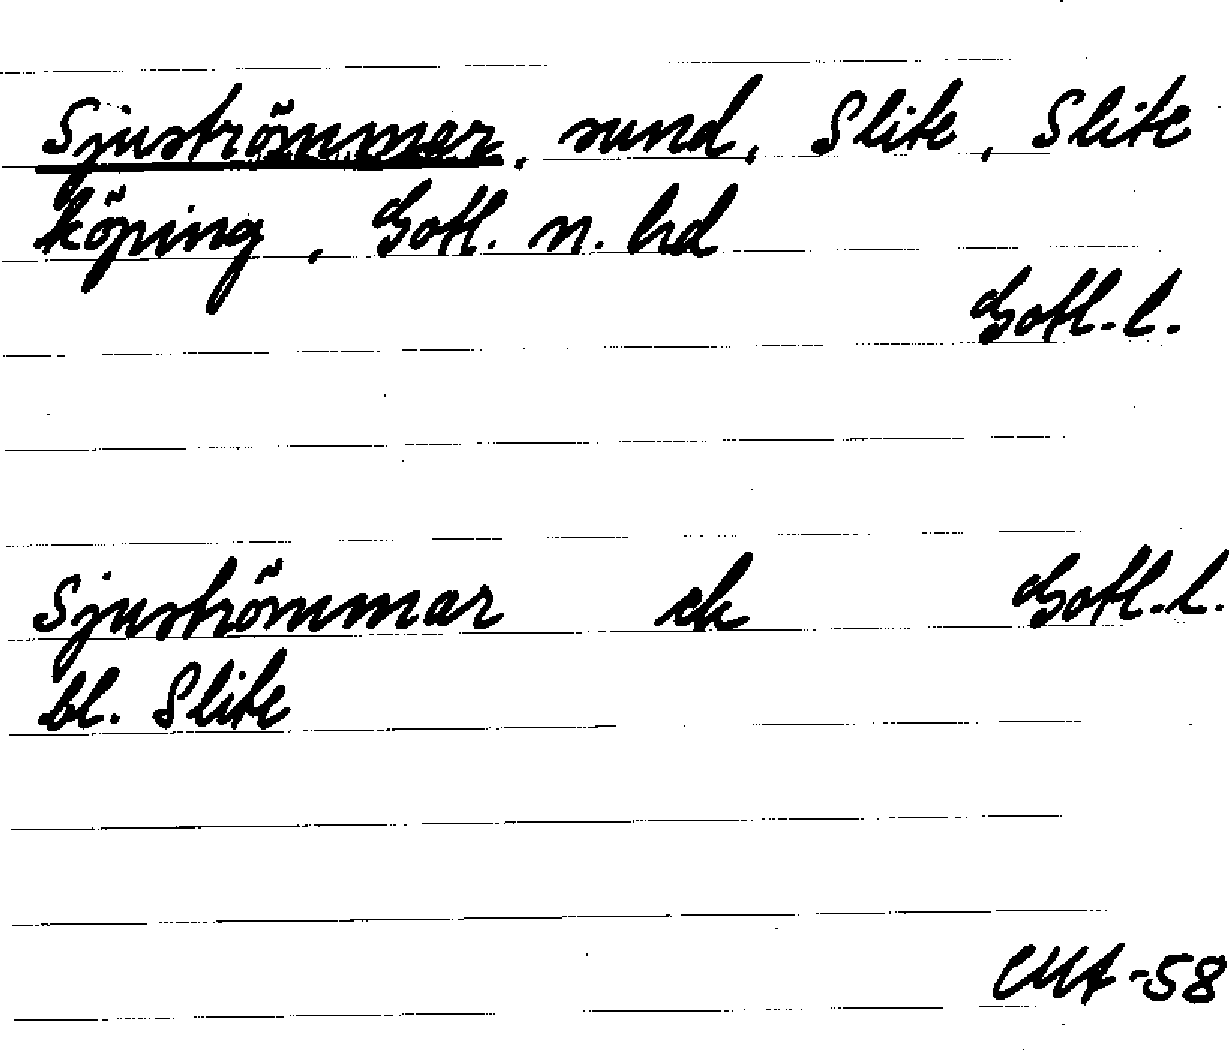 Sjuströmmar, sund, Slite, Slite
köping, Gotl. n. hd
Gotl.l.
Sjuströmmar ek Gotl.l.
bl. Slite
CMA-58